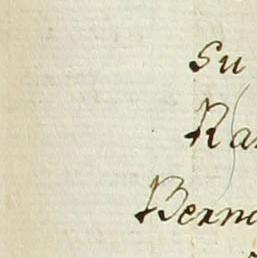 Su
Ra
Berna